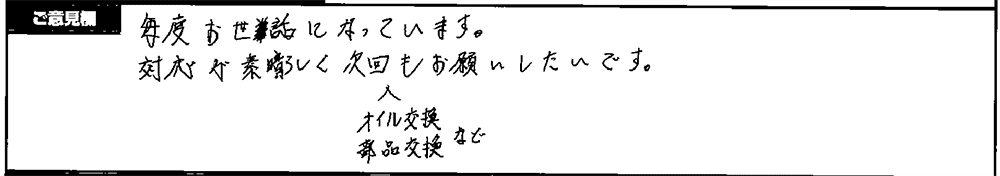 ご意見欄
毎度お世話になっています。
対応が素晴らしく次回もお願いしたいです。
オイル交換
部品交換 など